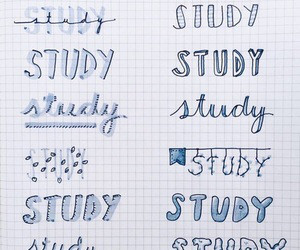 study
STUDY
STUDY
STUDY
study
study
STUDY
STUDY
STUDY
STUDY
study
STUDY